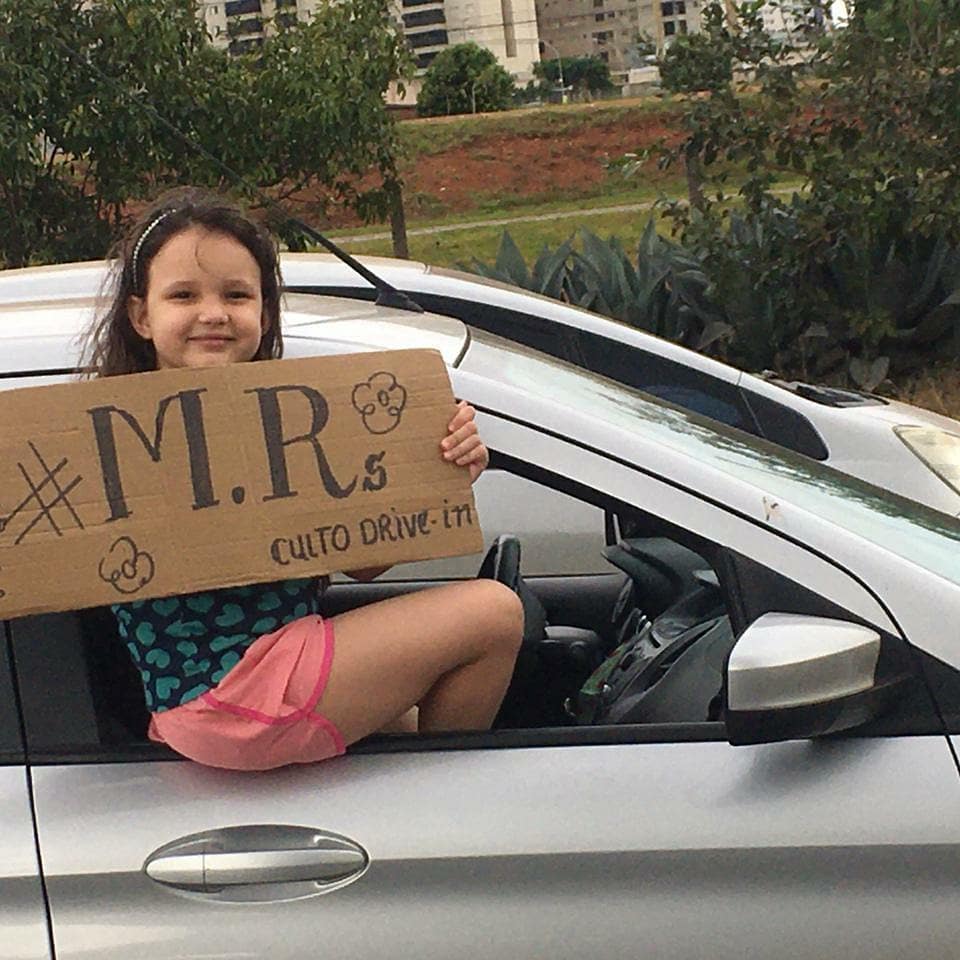 #M.Rs
CULTO DRive-in